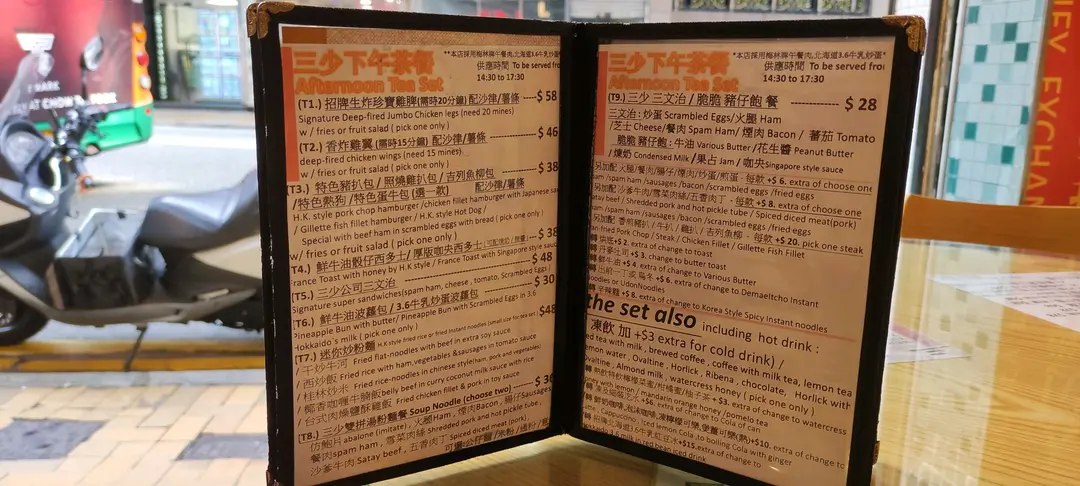 三少下午茶餐
Afternoon Tea Set
**本店採用梅林牌午餐肉,北海道3.6牛乳炒蛋
供應時間 To be served from
14:30 to 17:30
(T1.) 招牌生炸珍寶雞脾(需時20分鐘) 配沙律/薯條 $ 58
Signature Deep-fired Jumbo Chicken legs (need 20 mines)
w / fries or fruit salad ( pick one only )
(T2.) 香炸雞翼 (需時15分鐘) 配沙律/薯條 $ 46
deep-fired chicken wings (need 15 mines)
w / fries or fruit salad ( pick one only )
(T3.) 特色豬扒包 / 照燒雞扒包 / 吉列魚柳包 $ 38
/特色熱狗 /特色蛋牛包 (選一款) 配沙律/薯條
H.K. style pork chop hamburger /chicken fillet hamburger with Japanese sau
/ Gillette fish fillet hamburger / H.K style Hot Dog /
Special with beef ham in scrambled eggs with bread ( pick one only )
w/ fries or fruit salad ( pick one only )
$ 38
T4.) 鮮牛油骰仔西多士 / 厚版咖央西多士
rance Toast with honey by H.K style / France Toast with Singapore style sauce
(T5.) 三少公司三文治 $ 48
Signature super sandwiches(spam ham, cheese , tomato, Scrambled Eggs)
(T6.) 鮮牛油波蘿包 / 3.6牛乳炒蛋波蘿包 $ 30
Pineapple Bun with butter/ Pineapple Bun with Scrambled Eggs in 3.6
Hokkaido's milk ( pick one only )
(T7.) 迷你炒粉麵 H.K style fried rice or fried Instant noodles (small size for tea set) $48
/ 干炒牛河 Fried flat-noodles with beef in extra soy sauce
/ 西炒飯 Fried rice with ham,vegetables &sausages in tomato sauce
/ 桂林炒米 Fried rice-noodles in chinese style(ham, pork and vegetables)
/ 椰香咖喱牛腩飯 belly beef in curry coconut milk sauce with rice
/ 台式肉燥鹽酥雞飯 Fried chicken fillet & pork in toy sauce
T8.) 三少雙拼湯粉麵餐 Soup Noodle (choose two) $ 36
仿鮑片 abalone (Imitate) , 火腿Ham , 煙肉Bacon , 腸仔Sausages
餐肉spam ham , 雪菜肉絲 Shredded pork and hot pickle tube,
沙爹牛肉 Satay beef , 五香肉丁 Spiced diced meat(pork) ,
三少下午茶餐
Afternoon Tea Set
*本店採用梅林牌午餐肉,北海道3.6牛乳炒蛋*
供應時間 To be served from
14:30 to 17:30
(T9.) 三少 三文治 / 脆脆 豬仔飽 餐 $ 28
三文治 : 炒蛋 Scrambled Eggs/火腿 Ham
/芝士 Cheese/餐肉 Spam Ham/ 煙肉 Bacon / 蕃茄 Tomato
脆脆 豬仔飽 : 牛油 Various Butter /花生醬 Peanut Butter
/ 煉奶 Condensed Milk /果占 Jam / 咖央 Singapore style sauce
另加配 火腿/餐肉/腸仔/煙肉/炒蛋/煎蛋 - 每款 +$ 6. extra of choose one
am /spam ham /sausages /bacon /scrambled eggs /fried eggs
另加配 沙爹牛肉/雪菜肉絲/五香肉丁 - 每款 +$ 8. extra of choose one
atay beef / Shredded pork and hot pickle tube / Spiced diced meat(pork)
am /spam ham /sausages /bacon /scrambled eggs /fried eggs
另加配 香煎豬扒 / 牛扒 / 雞扒 / 吉列魚柳 - 每款 +$ 20. pick one steak
an-fried Pork Chop / Steak / Chicken Fillet / Gillette Fish Fillet
轉 烘底 +$ 2. extra of change to toast
轉 丹麥吐司 +$ 3. change to butter toast
轉 鮮牛油 +$ 4. extra of change to Various Butter
轉 出前一丁 或 烏冬 +$ 6. extra of change to Demaeltcho Instant
oodles or UdonNoodles
轉 辛辣麵 +$ 8. extra of change to Korea Style Spicy Instant noodles
the set also including hot drink :
凍飲 加 +$3 extra for cold drink) /
ed tea with milk , brewed coffee , coffee with milk tea, lemon tea
emon water , Ovaltine , Horlick , Ribena , chocolate, Horlick with
valtine , Almond milk , watercress honey ( pick one only )
+$ 3. extra of change to watercress
oney with lemon / mandarin orange honey /pomelo tea
+$6. extra of change to Cola of can
+$10.
atte , Cappuccino , Iced lemon Cola ,to boiling Cola with ginger
+$15.extra of change to
okkaido 3.6 milk in red bean iced drink
EV EXCHAN